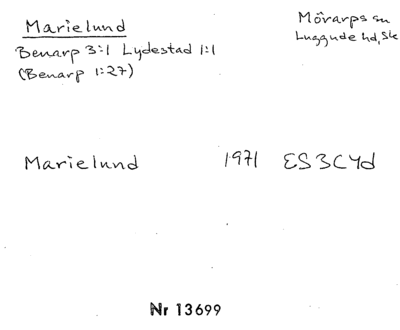 Marielund
Mörarps sn
Benarp 3:1 Lydestad 1:1
Luggude hd, Sk
(Benarp 1:27)
Marielund 1971 ES3C4d
Nr 13699